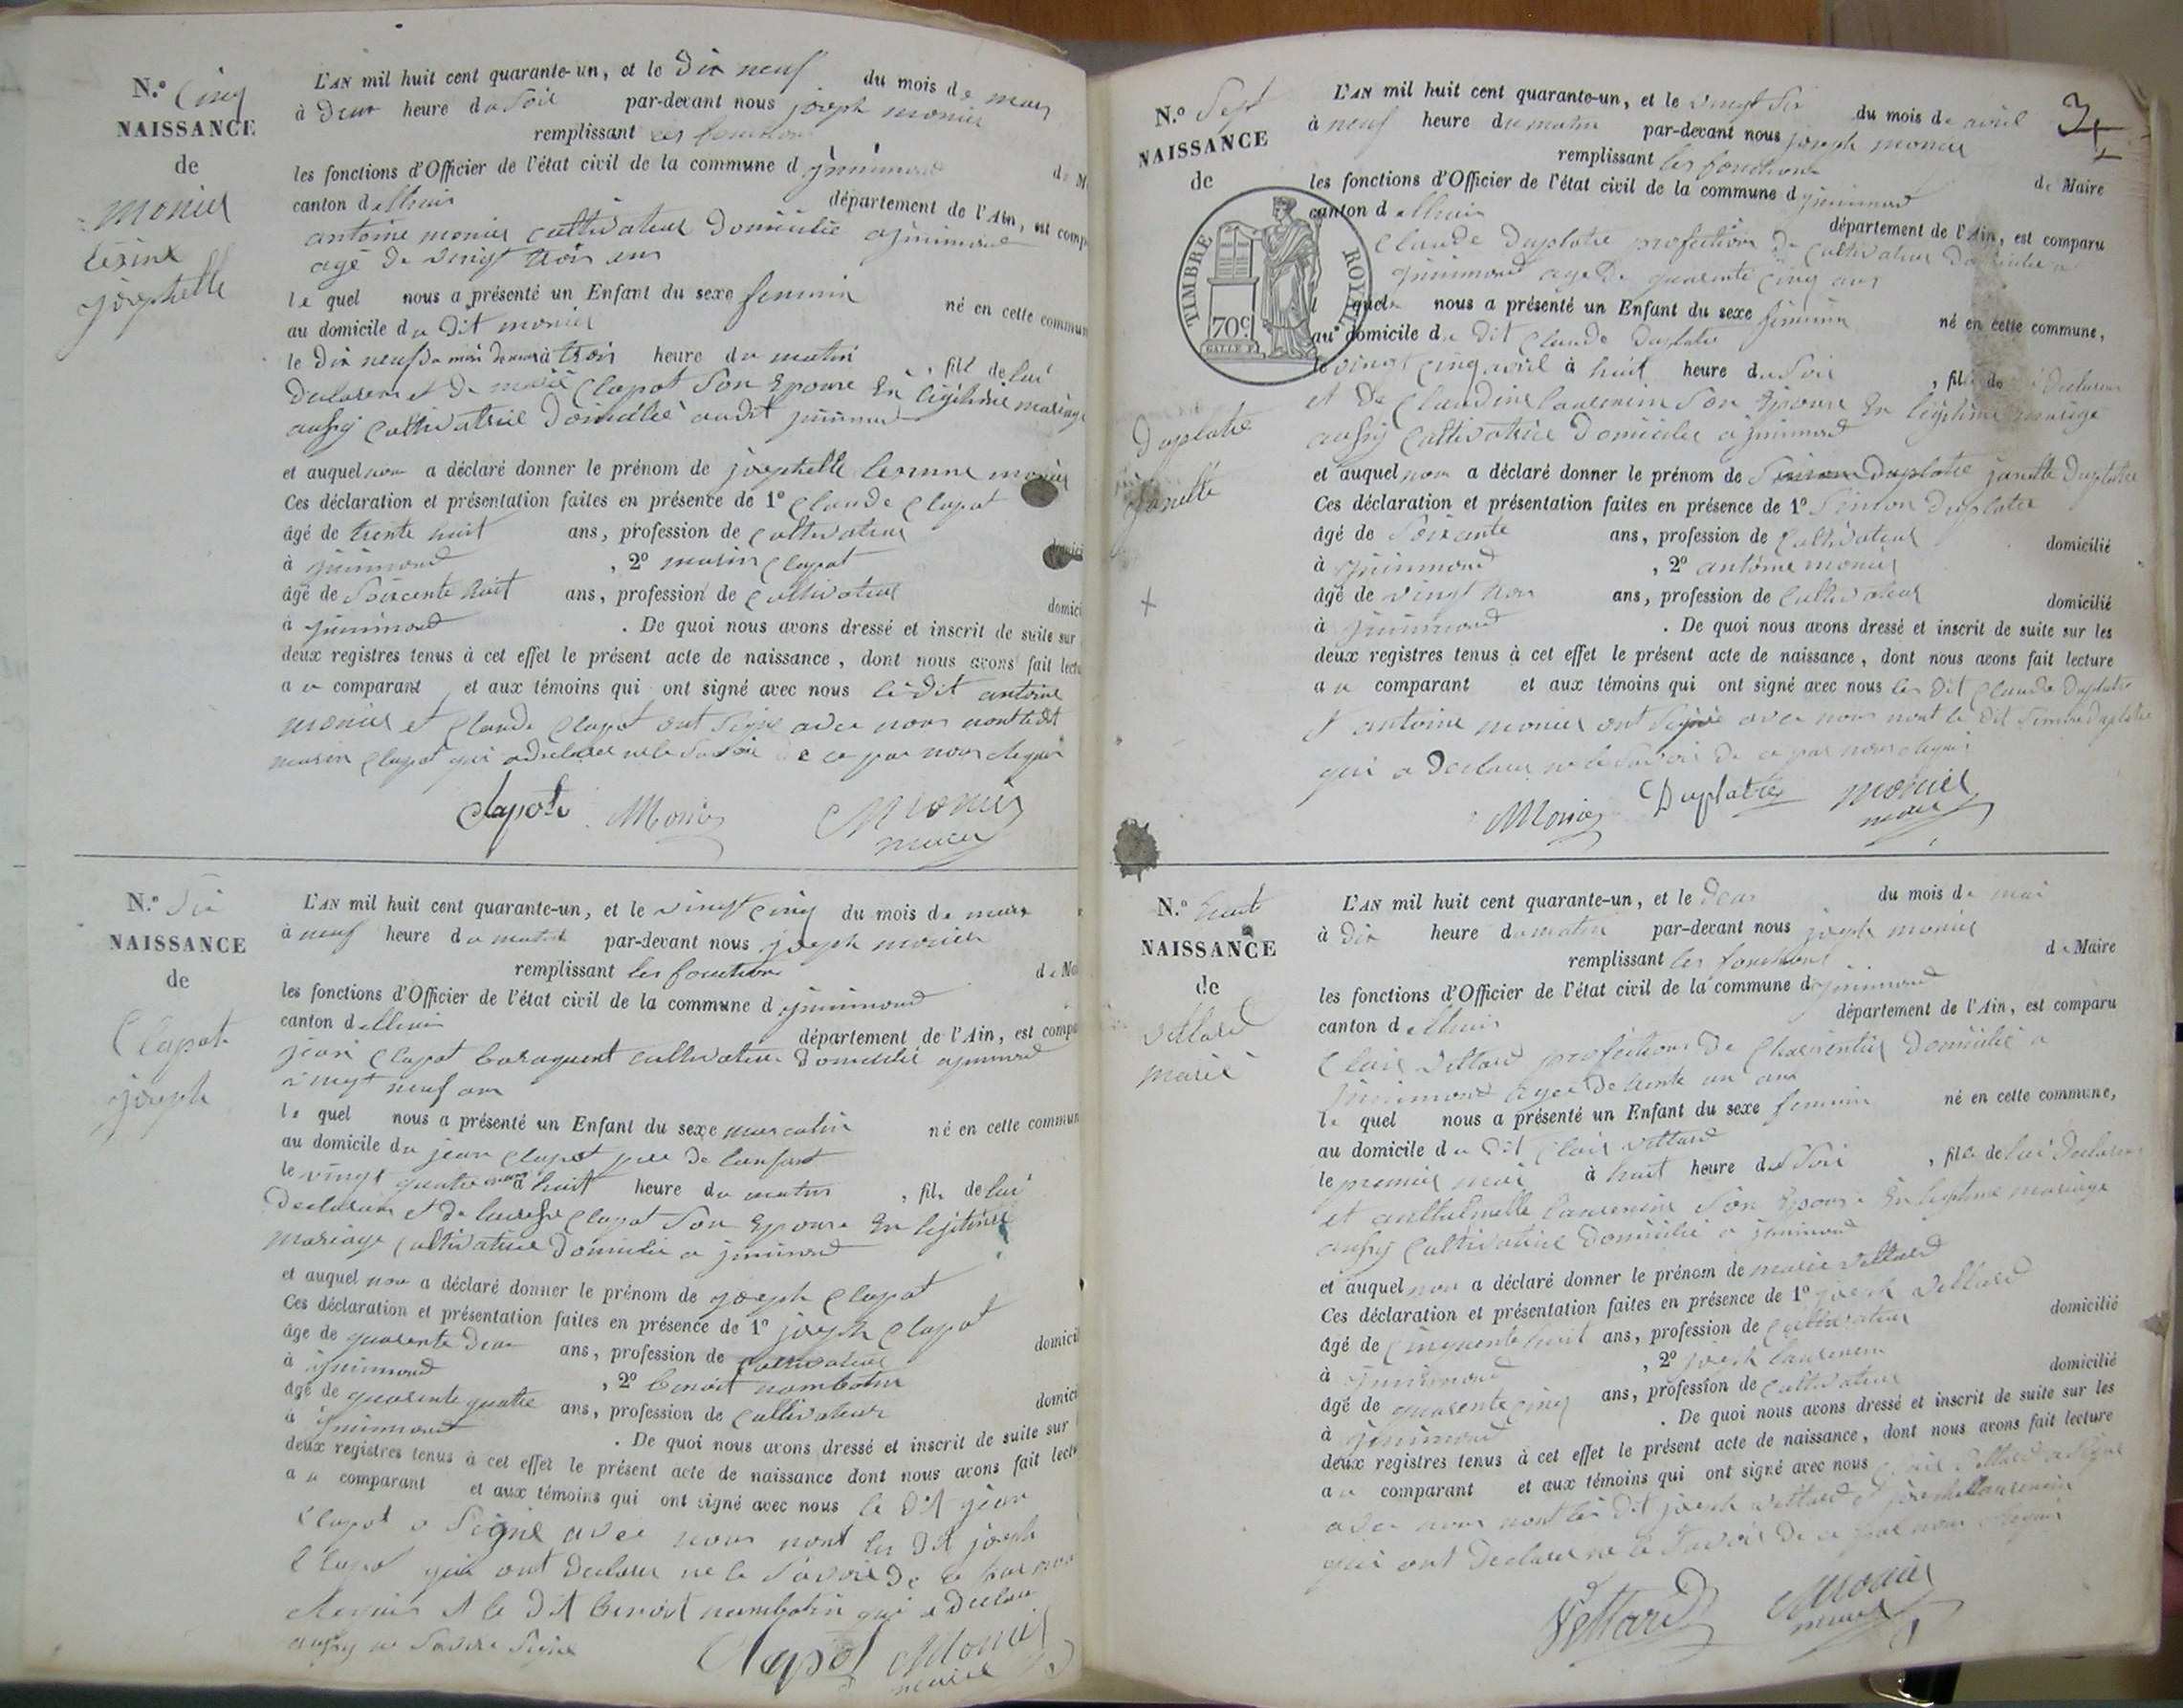 N.° Cinq
NAISSANCE
de
monier
josephette
L'AN mil huit cent quarante-un, et le dix neuf du mois de mars
à deux heure du soir par-devant nous joseph monier
remplissant les fonctions
les fonctions d'Officier de l'état civil de la commune d jnnimond
canton d lhuis département de l'Ain, est comp
antoine monier cultivateur domicilié a jnnimond
agé de vingt trois ans
le quel nous a présenté un Enfant du sexe feminin né en cette commun
au domicile du dit monier
le dix neuf du mois de mars à trois heure du matin, fille de lui
declarant et de marie Clapot son Epouse En légitime mariage
aussy cultivatrice domicilié audit jnnimond
et auquel nous a déclaré donner le prénom de josephette monier
Ces déclaration et présentation faites en présence de 1° Claude Clapot
âgé de trente huit ans, profession de Cultivateur domici
à jnnimond, 2° marin Clapot
âgé de soixcente huit ans, profession de Cultivateur domici
à jnnimond. De quoi nous avons dressé et inscrit de suite sur
deux registres tenus à cet effet le présent acte de naissance, dont nous avons fait lectu
au comparant et aux témoins qui ont signé avec nous le dit antoine
monier et Claude Clapot ont signé avec nous nont le dit
marin Clapot qui a declaré ne le savoir de ce par nous requis
Clapot Monier Monier
maire
N.° Six
NAISSANCE
de
Clapot
joseph
L'AN mil huit cent quarante-un, et le vingt cinq du mois de mars
à neuf heure du matin par-devant nous joseph monier
remplissant les fonctions de Ma
les fonctions d'Officier de l'état civil de la commune d jnnimond
canton d lhuis département de l'Ain, est compa
jean Clapot cultivateur domicilié a jnnimond
vingt neuf ans
le quel nous a présenté un Enfant du sexe masculin né en cette commun
au domicile du jean Clapot pere de lenfant
le vingt quatre mars à huit heure du matin, fils de lui
declarant et de Clapot son Epouse En légitime
mariage Cultivatrice domicilié a jnnimond
et auquel nous a déclaré donner le prénom de joseph Clapot
Ces déclaration et présentation faites en présence de 1° joseph Clapot
âgé de quarente deux ans, profession de Cultivateur domicil
à jnnimond, 2° benoit nambotin
âgé de quarente quatre ans, profession de Cultivateur domici
à jnnimond. De quoi nous avons dressé et inscrit de suite sur
deux registres tenus à cet effet le présent acte de naissance dont nous avons fait lectu
au comparant et aux témoins qui ont signé avec nous le dit jean
Clapot a signé avec nous nont les dit joseph
Clapot qui ont declaré ne le savoir de ce par nous
requis et le dit benoit nambotin qui a declaré
aussy ne savoir signé
Clapot Monier
maire
N.° Sept
NAISSANCE
de
TIMBRE ROYAL
70c
Duplatre
Janette
L'AN mil huit cent quarante-un, et le vingt six du mois de avril
à neuf heure du matin par-devant nous joseph monier
remplissant les fonctions de Maire
les fonctions d'Officier de l'état civil de la commune d jnnimond
canton d lhuis département de l'Ain, est comparu
Claude Duplatre profection de Cultivateur domicilié a
jnnimond agé de quarente cinq ans
l quel nous a présenté un Enfant du sexe feminin né en cette commune,
au domicile du dit Claude Duplatre
le vingt cinq avril à huit heure du soir, fille de declarant
et de Claudine laurencin son Epouse En légitime mariage
aussy Cultivatrice domicilié a jnnimond
et auquel nous a déclaré donner le prénom de Duplatre janette Duplatre
Ces déclaration et présentation faites en présence de 1° Simon Duplatre
âgé de soixcente ans, profession de Cultivateur domicilié
à jnnimond, 2° antoine monier
âgé de vingt trois ans, profession de Cultivateur domicilié
à jnnimond. De quoi nous avons dressé et inscrit de suite sur les
deux registres tenus à cet effet le présent acte de naissance, dont nous avons fait lecture
au comparant et aux témoins qui ont signé avec nous les dit Claude Duplatre
et antoine monier ont signé avec nous nont le dit Simon Duplatre
qui a declaré ne le savoir de ce par nous requis
Monier Duplatre Monier
maire
N.° huit
NAISSANCE
de
vettard
marie
L'AN mil huit cent quarante-un, et le deux du mois de mai
à dix heure du matin par-devant nous joseph monier
remplissant les fonctions de Maire
les fonctions d'Officier de l'état civil de la commune d jnnimond
canton d lhuis département de l'Ain, est comparu
Clair vettard profection de Charpentier domicilié a
jnnimond agé de trente un ans
le quel nous a présenté un Enfant du sexe feminin né en cette commune,
au domicile du dit Clair vettard
le premier mai à huit heure du soir, fille de lui declarant
et laurencin son Epouse En légitime mariage
aussy Cultivatrice domicilié a jnnimond
et auquel nous a déclaré donner le prénom de marie vettard
Ces déclaration et présentation faites en présence de 1° joseph vettard
âgé de cinquente huit ans, profession de Cultivateur domicilié
à jnnimond, 2° joseph laurencin
âgé de quarente cinq ans, profession de Cultivateur domicilié
à jnnimond. De quoi nous avons dressé et inscrit de suite sur les
deux registres tenus à cet effet le présent acte de naissance, dont nous avons fait lecture
au comparant et aux témoins qui ont signé avec nous Clair vettard a signé
avec nous nont les dit joseph vettard et joseph laurencin
qui ont declaré ne le savoir de ce par nous requis
Vettard Monier
maire